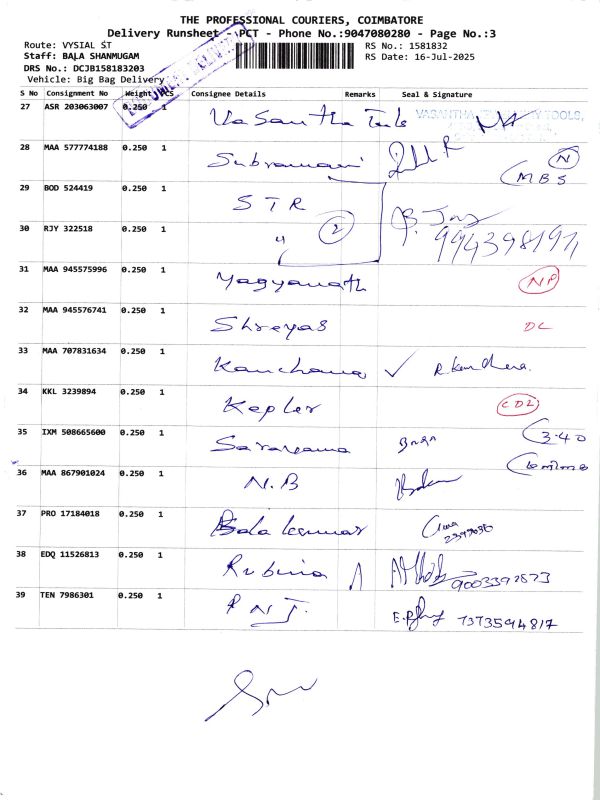 THE PROFESSIONAL COURIERS, COIMBATORE
Delivery Runsheet - PCT - Phone No.:9047080280 - Page No.:3
Route: VYSIAL ST RS No.: 1581832
Staff: BALA SHANMUGAM RS Date: 16-Jul-2025
DRS No.: DCJB158183203
Vehicle: Big Bag Delivery
S No Consignment No Weight PCS Consignee Details Remarks Seal & Signature
27 ASR 203063007 0.250 1 Vasantha Tools VASANTHA TOOLS,
28 MAA 577774188 0.250 1 Subramani N
MBS
29 BOD 524419 0.250 1 STR
30 RJY 322518 0.250 1 " 2
31 MAA 945575996 0.250 1 Yagyanath NP
32 MAA 945576741 0.250 1 Shreyas DL
33 MAA 707831634 0.250 1 Kanchana ✓
34 KKL 3239894 0.250 1 Kepler CDL
35 IXM 508665600 0.250 1 Saravana 3-40
36 MAA 867901024 0.250 1 N.B
37 PRO 17184018 0.250 1 Bala kumar
38 EDQ 11526813 0.250 1 Rubina
39 TEN 7986301 0.250 1 PNJ. 7373594817